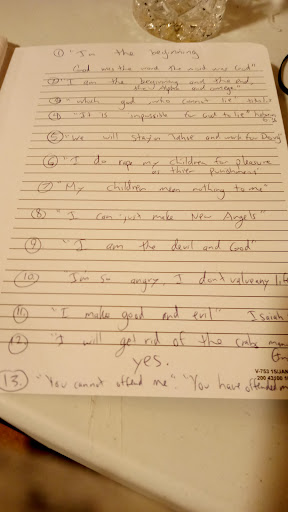 ① "In the beginning
God was the word the word was God"
② "I am the beginning and the end,
the Alpha and omega"
③ "which god who cannot lie"
④ "It is impossible for God to lie" Hebrews
⑤ "We will stay in Tahoe and wait for
⑥ "I do rape my children for pleasure
as their punishment"
⑦ "My children mean nothing to me"
⑧ "I can just make New Angels"
⑨ "I am the devil and God"
⑩ "Im so angry, I don't value any life
⑪ "I make good and evil" Isaiah
⑫ "I will get rid of the
yes.
V-753 15
200 43100 1
⑬. "You cannot offend me". "You have offended me